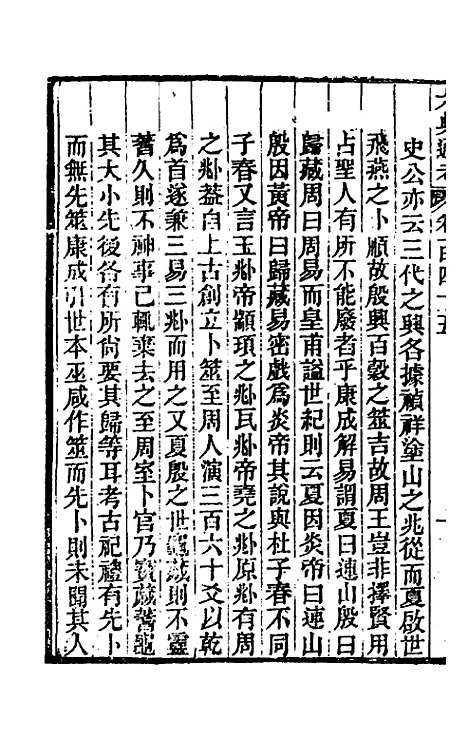 六典通考 卷百四十五
史公亦云三代之興各據禎祥塗山之兆從而夏啟世
飛燕之卜順故殷興百穀之筮吉故周王豈非擇賢用
占聖人有所不能廢者乎康成解易謂夏曰連山殷曰
歸藏周曰周易而皇甫謐世紀則云夏因炎帝曰連山
殷因黃帝曰歸藏易密戲爲炎帝其說與杜子春不同
子春又言玉𠧞帝顓頊之𠧞瓦𠧞帝堯之𠧞原𠧞有周
之𠧞葢自上古創立卜筮至周人演三百六十爻以乾
爲首遂兼三易三𠧞而用之又夏殷之世龜藏則不靈
蓍久則不神事已輒棄去之至周室卜官乃寶藏蓍龜
其大小先後各有所尙要其歸等耳考古祀禮有先卜
而無先筮康成引世本巫咸作筮而先卜則未聞其人